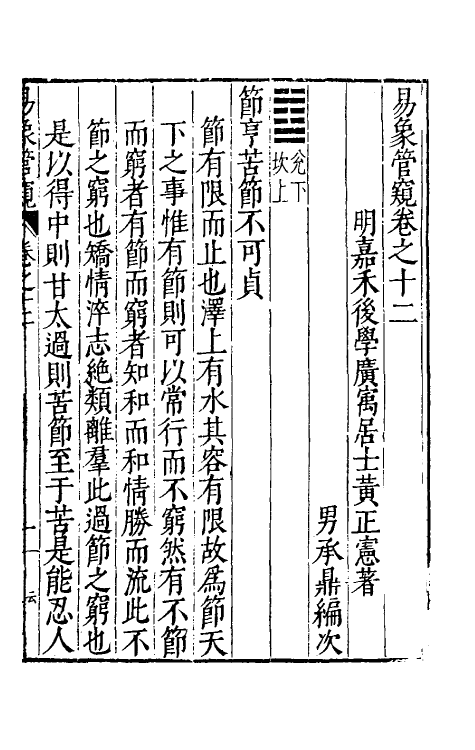 易象管窺卷之十二
明嘉禾後學廣寓居士黃正憲著
男承鼎編次
兌下
坎上
節亨苦節不可貞
節有限而止也澤上有水其容有限故爲節天
下之事惟有節則可以常行而不窮然有不節
而窮者有節而窮者知和而和情勝而流此不
節之窮也矯情淬志絶類離羣此過節之窮也
是以得中則甘太過則苦節至于苦是能忍人
易象管窺
卷之十二
一